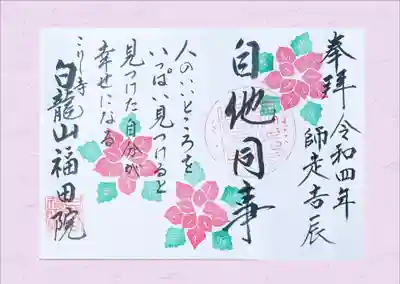 奉拝 令和四年
師走吉辰
自他同事
人のいいところを
いっぱい見つけると
見つけた自分が
幸せになる
白龍山福田院